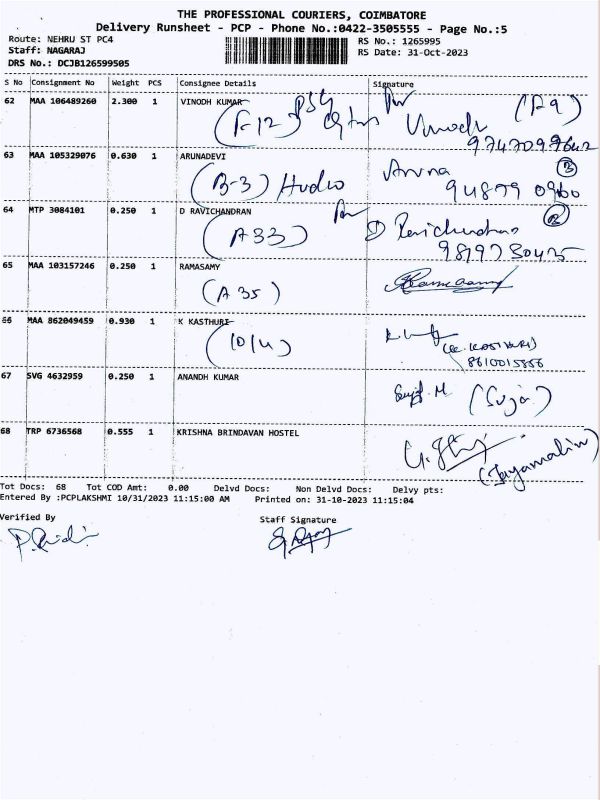 THE PROFESSIONAL COURIERS, COIMBATORE
Delivery Runsheet - PCP - Phone No.:0422-3505555 - Page No.:5
Route: NEHRU ST PC4 RS No.: 1265995
Staff: NAGARAJ RS Date: 31-Oct-2023
DRS No.: DCJB126599505
S No Consignment No Weight PCS Consignee Details Signature
62 MAA 106489260 2.300 1 VINODH KUMAR
(F-12) Vinodh (F9)
63 MAA 105329076 0.630 1 ARUNADEVI Aruna 3
(B-3) Hudco
64 MTP 3084101 0.250 1 D RAVICHANDRAN D Ravichandran
(A33)
65 MAA 103157246 0.250 1 RAMASAMY Ramasamy
(A 35)
66 MAA 862049459 0.930 1 K KASTHURI
(10/4) (K. KASTHURI)
8610015856
67 SVG 4632959 0.250 1 ANANDH KUMAR Sujif M (Suja)
68 TRP 6736568 0.555 1 KRISHNA BRINDAVAN HOSTEL
(Jayamalini)
Tot Docs: 68 Tot COD Amt: 0.00 Delvd Docs: Non Delvd Docs: Delvy pts:
Entered By :PCPLAKSHMI 10/31/2023 11:15:00 AM Printed on: 31-10-2023 11:15:04
Verified By Staff Signature